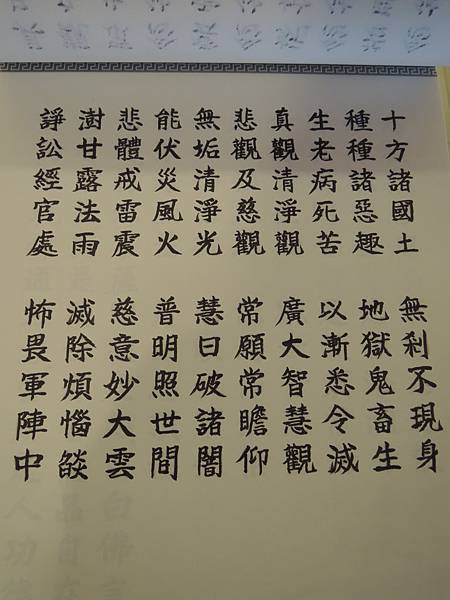 十方諸國土 無刹不現身
種種諸惡趣 地獄鬼畜生
生老病死苦 以漸悉令滅
真觀清淨觀 廣大智慧觀
悲觀及慈觀 常願常瞻仰
無垢清淨光 慧日破諸闇
能伏災風火 普明照世間
悲體戒雷震 慈意妙大雲
澍甘露法雨 滅除煩惱燄
諍訟經官處 怖畏軍陣中